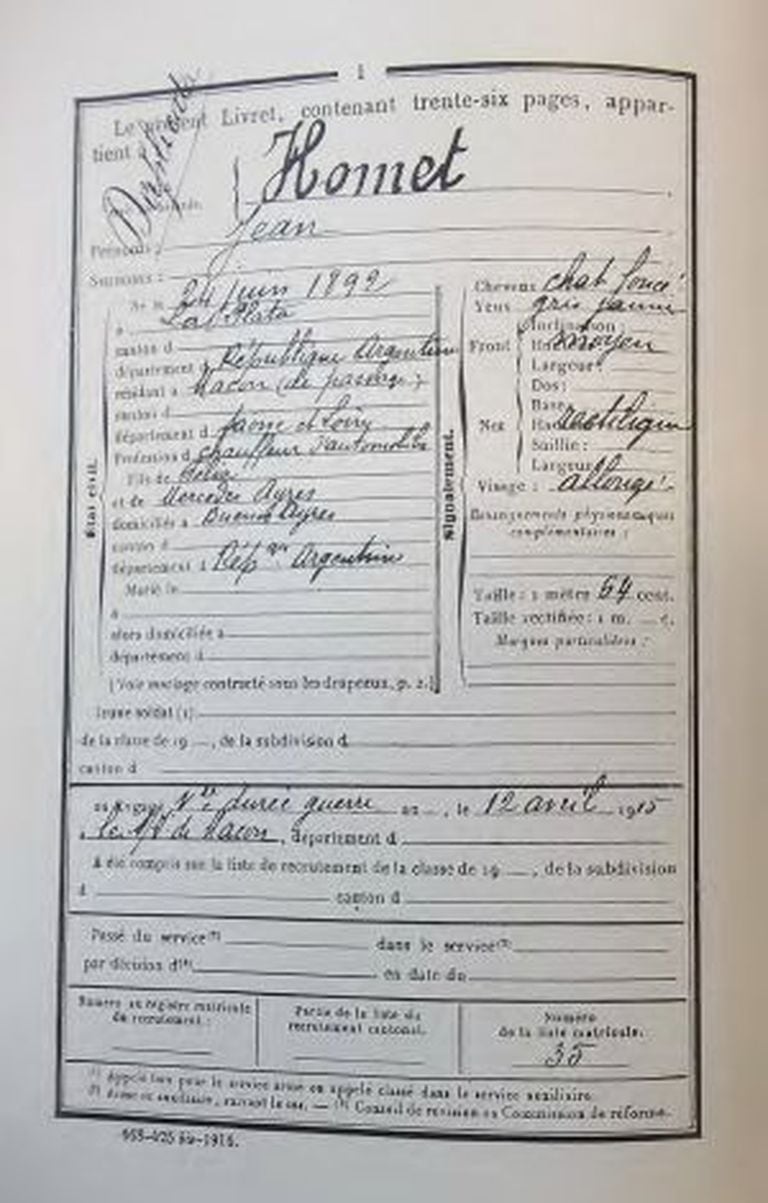 1
Le présent Livret, contenant trente-six pages, appar-
tient à
Duplicata
Homet
Prénoms : Jean
Surnoms :
Né le 24 juin 1892
à La Plata
canton d
département d République Argentine
résidant à Macon (de passage)
canton d
département d Saone et Loire
Profession d chauffeur d'automobile
Fils de
et de Mercedes Ayres
domiciliés à Buenos Ayres
canton d
département d Rép que Argentine
Marié le
à
alors domiciliée à
département d
(Voir mariage contracté sous les drapeaux, p. 2.)
État civil.
Signalement.
Cheveux chat foncé
Yeux gris jaune
Front Inclinaison :
Hauteur moyen
Largeur :
Nez Dos :
Base rectiligne
Hauteur
Saillie :
Largeur
Visage : allongé
Renseignements physionomiques
complémentaires :
Taille : 1 mètre 64 cent.
Taille rectifiée : 1 m. c.
Marques particulières :
Jeune soldat (1)
de la classe de 19 , de la subdivision d
canton d
durée guerre an , le 12 avril 1915
à de Macon, département d
A été compris sur la liste de recrutement de la classe de 19 , de la subdivision
d canton d
Passé du service (2) dans le service (2)
par décision d (3) en date du
Numéro au registre matricule
du recrutement :
Partie de la liste du
recrutement cantonal.
Numéro
de la liste matricule.
35
(1) Appelé bon pour le service armé ou appelé classé dans le service auxiliaire.
(2) Armé ou auxiliaire, suivant le cas. — (3) Conseil de révision ou Commission de réforme.